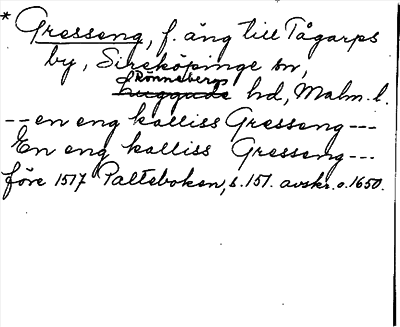 * Gresseng, f. äng till Tågarps
by, Sireköpinge sn,
Rönnebergs
Luggude hd, Malm. l.
-- en eng kalliss Gresseng ---
En eng kalliss Gresseng ---
före 1517 Palteboken, s. 151. avskr. o. 1650.